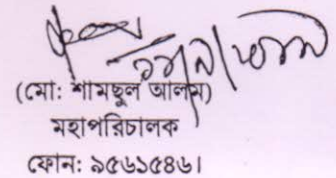 (মো: শামছুল আলম)
মহাপরিচালক
ফোন: ৯৫৬১৫৪৬।